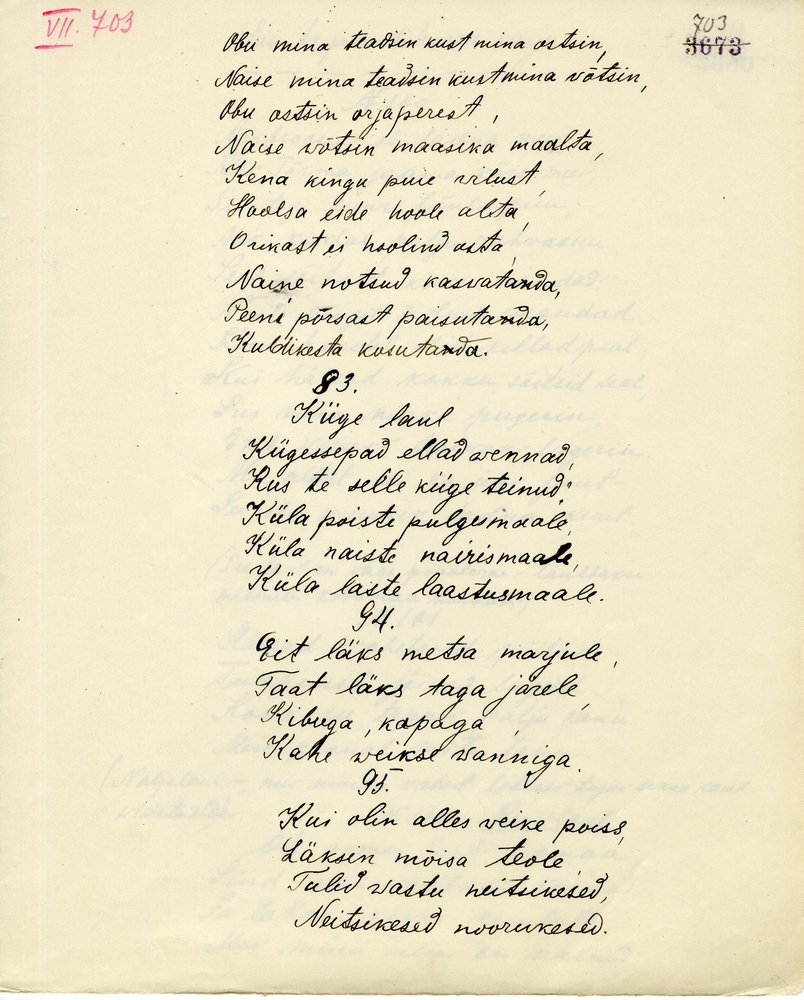 VII. 703
703
3673
Obu mina teadsin kust mina ostsin,
Naise mina teadsin kust mina võtsin,
Obu ostsin orjaperest,
Naise wõtsin maasika maalta,
Kena kingu puie vilust,
Hoolsa eide hoole alta,
Orikast ei hoolind osta,
Naine notsud kasvatanda,
Peeni põrsast paisutanda,
Kuldikesta kosutanda.
83.
Kiige laul
Kiigessepad ellad wennad,
Kus te selle kiige teinud?
Küla poiste pulgusmaale,
Küla naiste nairismaale,
Küla laste laastusmaale.
94.
Eit läks metsa marjule,
Taat läks taga järele,
Kibuga, kapaga,
Kahe weikse wanniga.
95.
Kui olin alles weike poiss,
Läksin mõisa teole,
Tulid wastu neitsikesed,
Neitsikesed noorukesed.